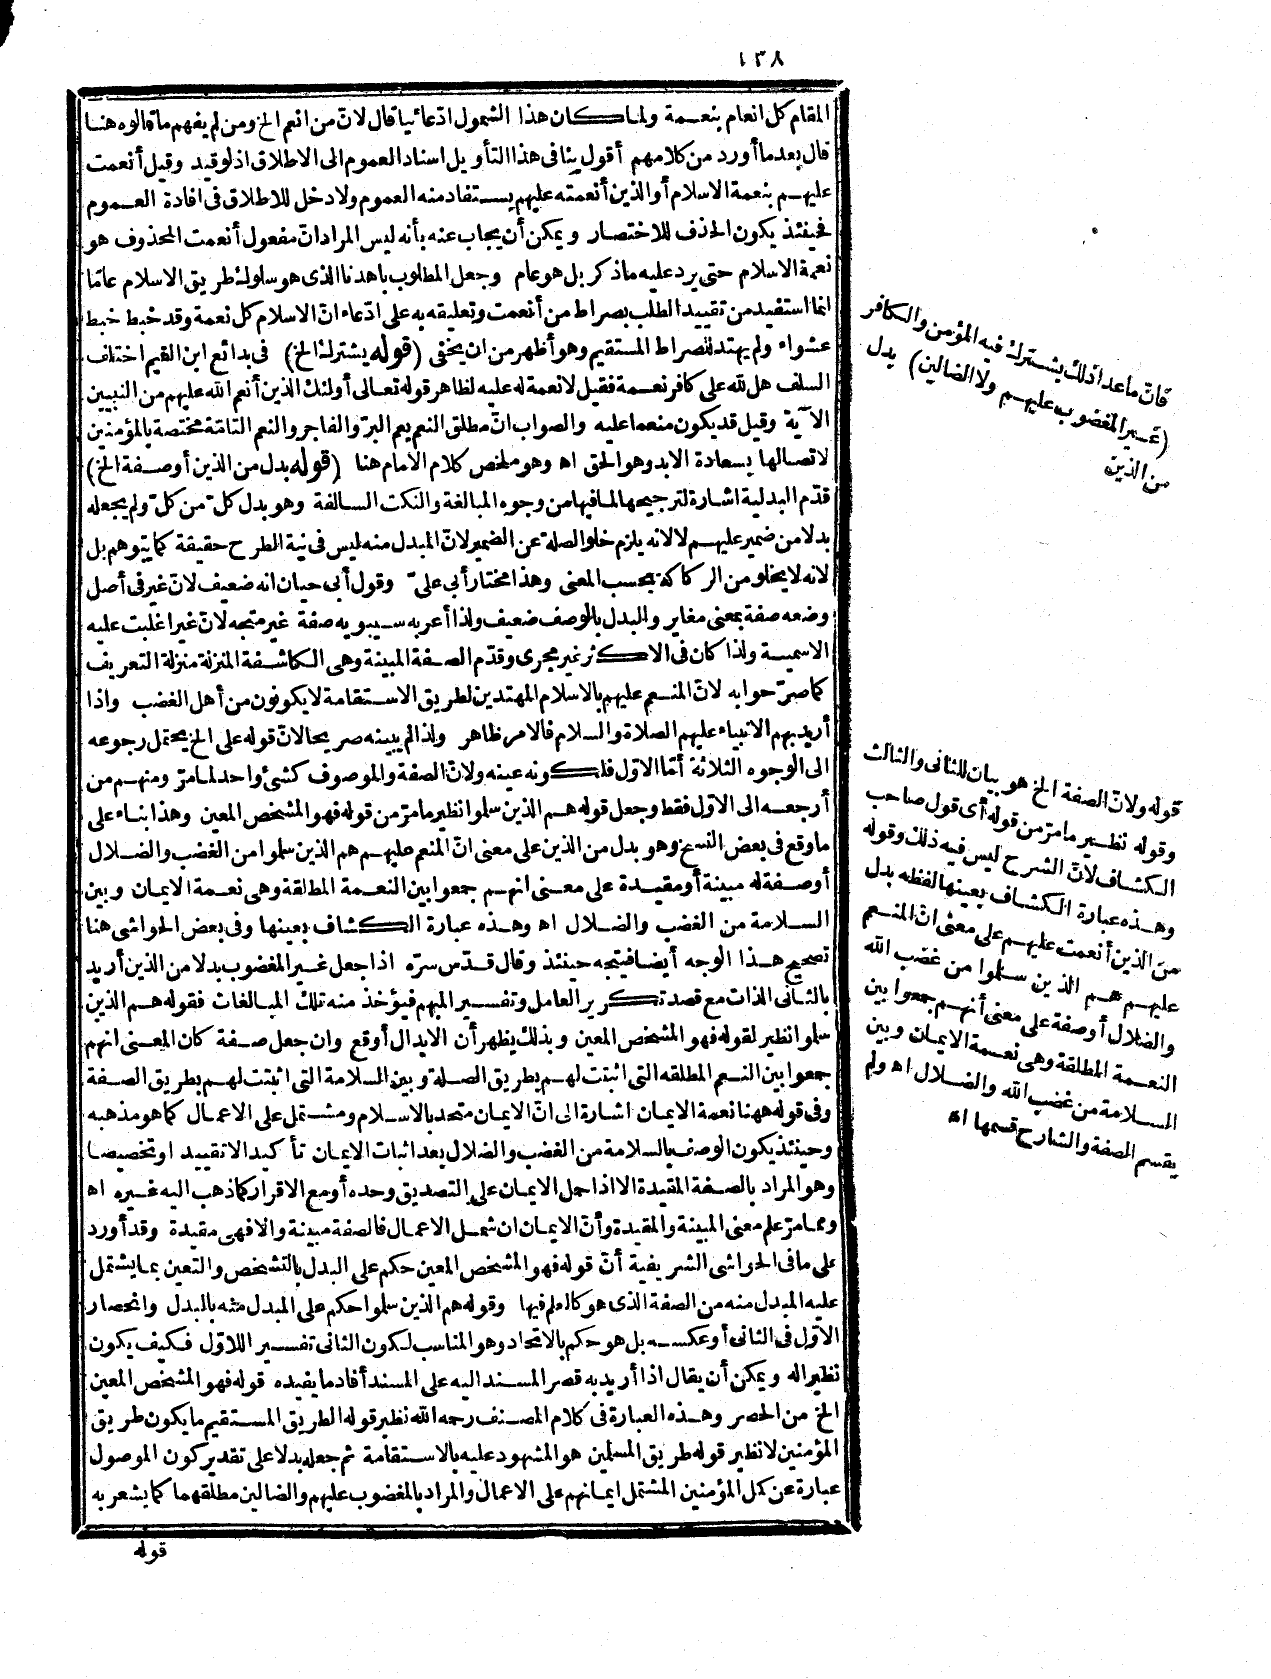 ١٣٨
المقام كل انعام بنعمة ولما كان هذا الشمول ادّعائيا قال لانّ من انعم الخ ومن لم يفهم ما قالوه هنا
قال بعد ما أورد من كلامهم أقول ينافى هذا التأويل اسناد العموم الى الاطلاق اذ لو قيد وقيل أنعمت
عليهم بنعمة الاسلام أو الذين أنعمته عليهم يستفاد منه العموم ولا دخل للاطلاق فى افادة العموم
فحينئذ يكون الحذف للاختصار ويمكن أن يجاب عنه بأنه ليس المراد انّ مفعول أنعمت المحذوف هو
نعمة الاسلام حتى يرد عليه ما ذكر بل هو عام وجعل المطلوب باهدنا الذى هو سلوك طريق الاسلام عامّا
انما استفيد من تقييد الطلب بصراط من أنعمت وتعليقه به على ادّعاء انّ الاسلام كل نعمة وقد خبط خبط
عشواء ولم يهتد للصراط المستقيم وهو أظهر من ان يخفى (قوله يشترك الخ) فى بدائع ابن القيم اختلف
السلف هل لله على كافر نعمة فقيل لا نعمة له عليه لظاهر قوله تعالى أولئك الذين أنعم الله عليهم من النبيين
الآية وقيل قد يكون منعما عليه والصواب انّ مطلق النعم يعم البرّ والفاجر والنعم التامّة مختصة بالمؤمنين
لاتصالها بسعادة الابد وهو الحق اه وهو ملخص كلام الامام هنا (قوله بدل من الذين أو صفة الخ)
قدّم البدلية اشارة لترجيحها لما فيها من وجوه المبالغة والنكت السالفة وهو بدل كل من كل ولم يجعله
بدلا من ضمير عليهم لا لانه يلزم خلو الصلة عن الضمير لانّ المبدل منه ليس فى نية الطرح حقيقة كما يتوهم بل
لانه لا يخلو من الركاكة بحسب المعنى وهذا مختار أبى علىّ وقول أبى حيان انه ضعيف لانّ غير فى أصل
وضعه صفة بمعنى مغاير والبدل بالوصف ضعيف ولذا أعربه سيبويه صفة غير متجه لانّ غيرا غلبت عليه
الاسمية ولذا كان فى الاكثر غير مجرى وقدّم الصفة المبينة وهى الكاشفة المنزلة منزلة التعريف
كما صرّحوا به لانّ المنعم عليهم بالاسلام المهتدين لطريق الاستقامة لا يكونون من أهل الغضب واذا
أريد بهم الانبياء عليهم الصلاة والسلام فالامر ظاهر ولذا لم يبينه صريحا لانّ قوله على الخ يحتمل رجوعه
الى الوجوه الثلاثة أمّا الاوّل فلكونه عينه ولانّ الصفة والموصوف كشئ واحد لما مرّ ومنهم من
أرجعه الى الاوّل فقط وجعل قوله هم الذين سلموا نظير ما مرّ من قوله فهو المشخص المعين وهذا بناء على
ما وقع فى بعض النسخ وهو بدل من الذين على معنى انّ المنعم عليهم هم الذين سلموا من الغضب والضلال
أو صفة له مبينة أو مقيدة على معنى انهم جمعوا بين النعمة المطلقة وهى نعمة الايمان وبين
السلامة من الغضب والضلال اه وهذه عبارة الكشاف بعينها وفى بعض الحواشى هنا
تصحيح هذا الوجه أيضا فيتجه حينئذ وقال قدّس سرّه اذا جعل غير المغضوب بدلا من الذين أريد
بالثانى الذات مع قصد تكرير العامل وتفسير المبهم فيؤخذ منه تلك المبالغات فقوله هم الذين
سلموا نظير لقوله فهو المشخص المعين وبذلك يظهر أن الابدال أوقع وان جعل صفة كان المعنى انهم
جمعوا بين النعم المطلقه التى اثبتت لهم بطريق الصلة وبين السلامة التى اثبتت لهم بطريق الصفة
وفى قوله ههنا نعمة الايمان اشارة الى انّ الايمان متحد بالاسلام ومشتمل على الاعمال كما هو مذهبه
وحينئذ يكون الوصف بالسلامة من الغضب والضلال بعد اثبات الايمان تأكيدا لا تقييدا وتخصيصا
وهو المراد بالصفة المقيدة الا اذا حمل الايمان على التصديق وحده أو مع الاقرار كما ذهب اليه غيره اه
ومما مرّ علم معنى المبينة والمقيدة وأنّ الايمان ان شمل الاعمال فالصفة مبينة والا فهى مقيدة وقد أورد
على ما فى الحواشى الشريفية أنّ قوله فهو المشخص المعين حكم على البدل بالتشخص والتعين بما يشتمل
عليه المبدل منه من الصفة الذى هو كالعلم فيها وقوله هم الذين سلموا حكم على المبدل منه بالبدل وانحصار
الاوّل فى الثانى أو عكسه بل هو حكم بالاتحاد وهو المناسب لكون الثانى تفسير اللاوّل فكيف يكون
نظيراله ويمكن أن يقال اذا أريد به قصر المسند اليه على المسند أفاد ما يفيده قوله فهو المشخص المعين
الخ من الحصر وهذه العبارة فى كلام المصنف رحمه الله نظير قوله الطريق المستقيم ما يكون طريق
المؤمنين لا نظير قوله طريق المسلمين هو المشهود عليه بالاستقامة ثم جعله بدلا على تقدير كون الموصول
عبارة عن كمل المؤمنين المشتمل ايمانهم على الاعمال والمراد بالمغضوب عليهم والضالين مطلقهما كما يشعر به
قوله
فانّ ما عدا ذلك يشترك فيه المؤمن والكافر
(غير المغضوب عليهم ولا الضالين) بدل
من الذين
قوله ولانّ الصفة الخ هو بيان للثانى والثالث
وقوله نظير ما مرّ من قوله أى قول صاحب
الكشاف لانّ الشرح ليس فيه ذلك وقوله
وهذه عبارة الكشاف بعينها لفظه بدل
من الذين أنعمت عليهم على معنى انّ المنعم
عليهم هم الذين سلموا من غضب الله
والضلال أو صفة على معنى أنهم جمعوا بين
النعمة المطلقة وهى نعمة الايمان وبين
السلامة من غضب الله والضلال اه ولم
يقسم الصفة والشارح قسمها اه